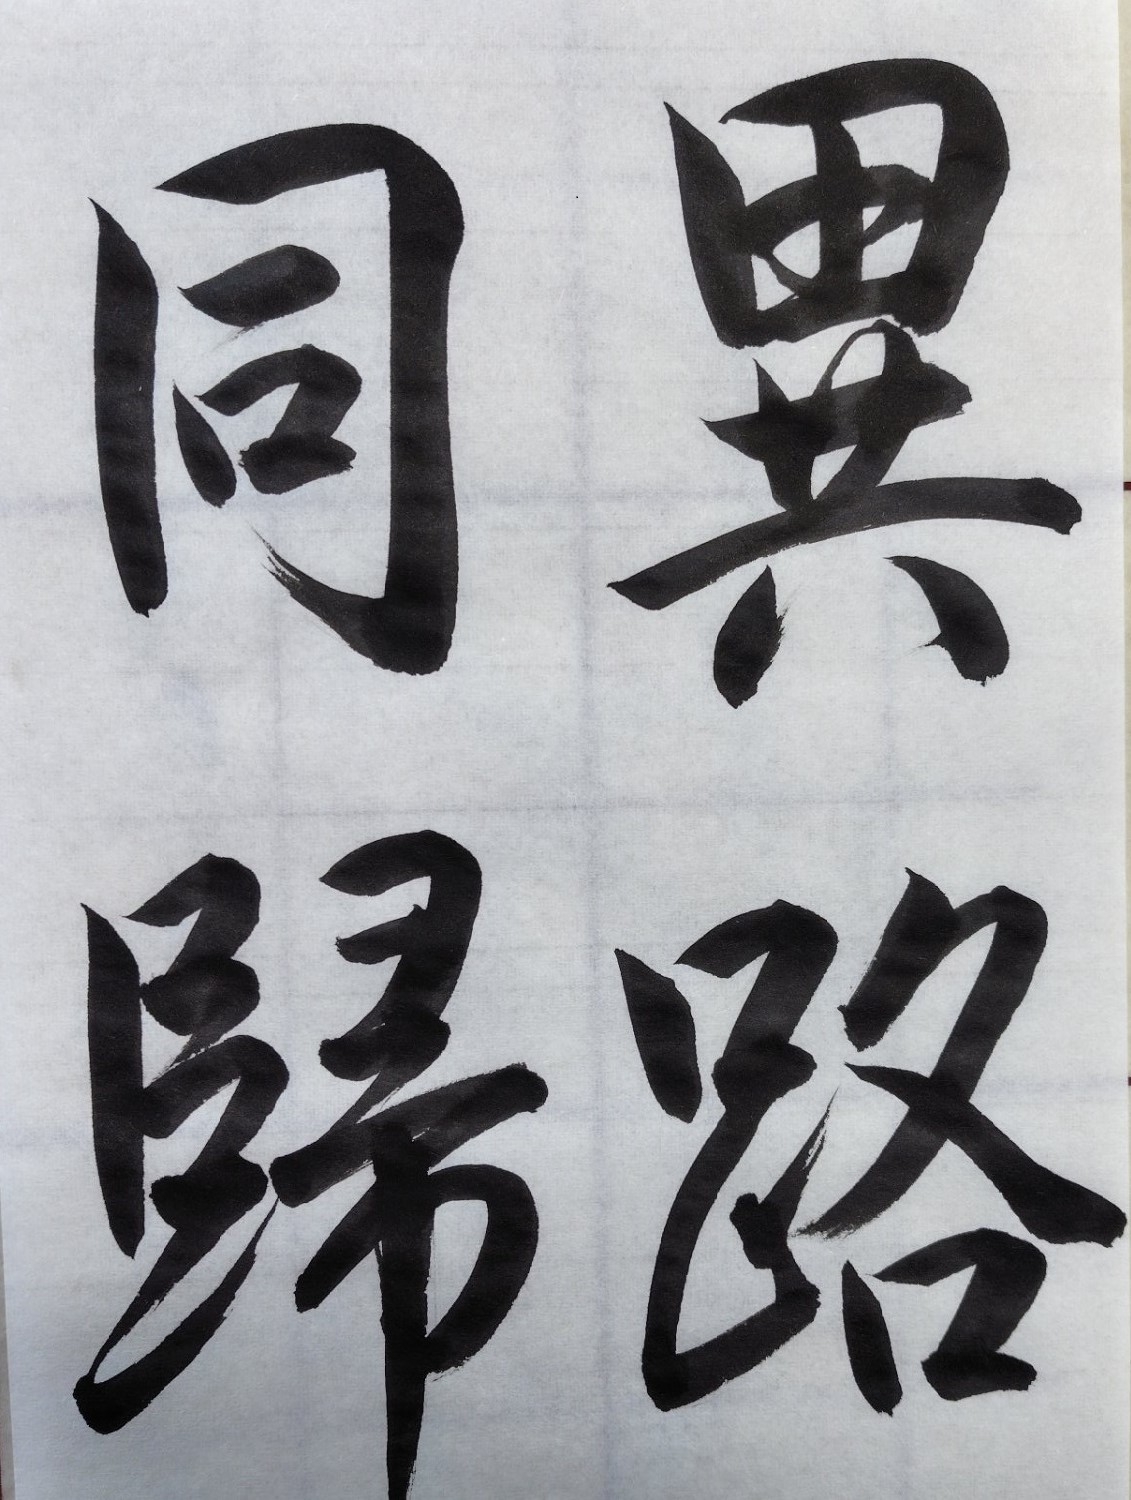 異路
同歸